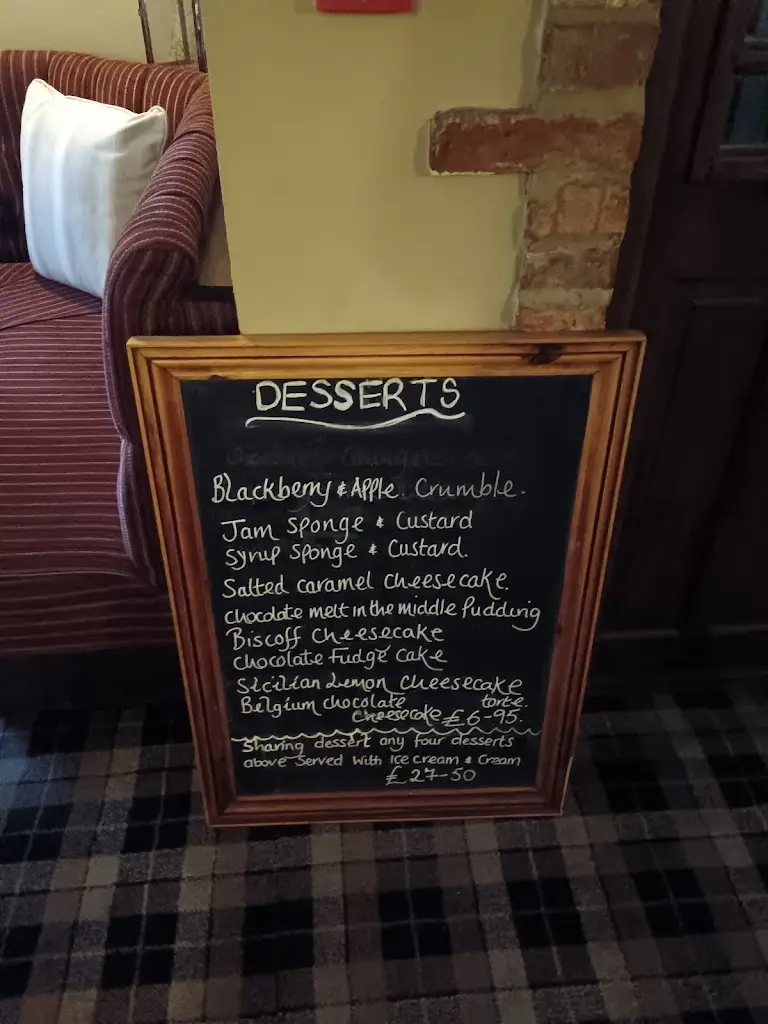 DESSERTS
Blackberry & Apple Crumble.
Jam Sponge & Custard
Syrup Sponge & Custard.
Salted caramel cheesecake.
chocolate melt in the middle Pudding
Biscoff cheesecake
Chocolate Fudge cake
Sicilian Lemon cheesecake
Belgium chocolate torte.
cheesecake £6-95.
Sharing dessert any four desserts
above Served With Ice cream & Cream
£27-50